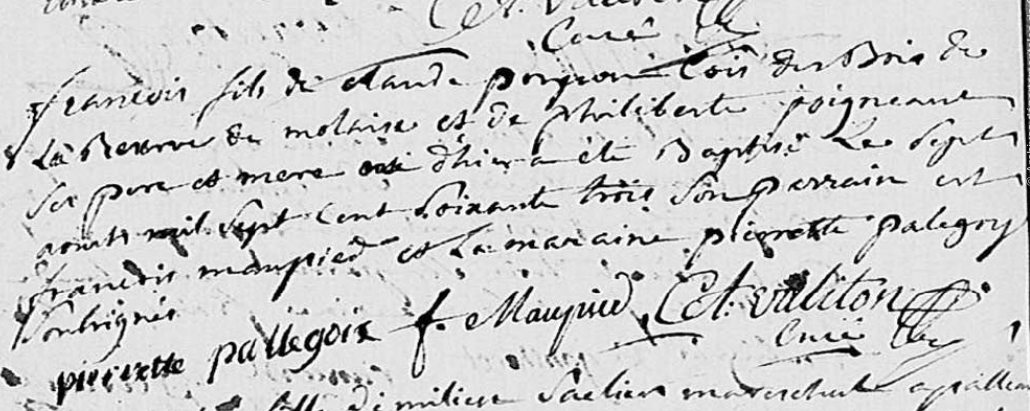 Curé
françois fils de claude poignon Cois des Bois de
La Reserve de molaise et de philiberte poigneaut
ses pere et mere né d'hier a été Baptisé Le Sept
aoust mil Sept Cent Soixante trois Son parrain est
françois maupied et La maraine pierrette palegoy
Soubsignés
pierrette pallegoix f. Maupied Et. valiton
Curé
fille d'emilien marechal a palleau